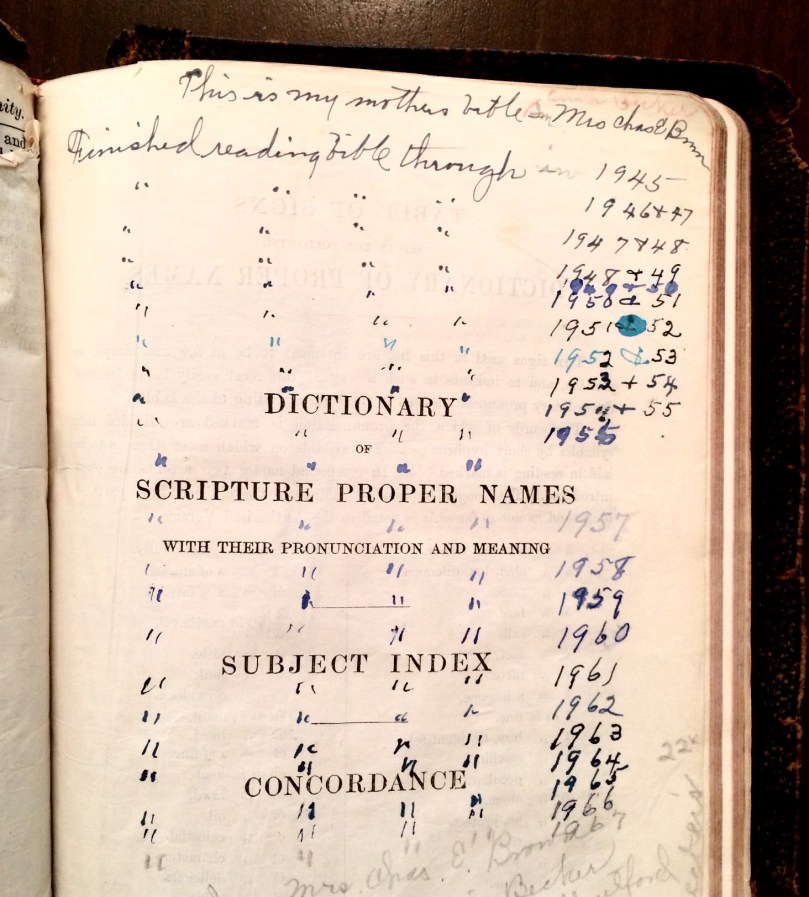 vity.
and
This is my mothers bible Mrs Chas E Brown
Finished reading bible through in 1945
" " " " 1946+47
" " " " 1947+48
" " " " 1948+49
" " " " 1949+50
" " " " 1950+51
" " " " 1951 52
" " " " 1952 & 53
" " " " 1953+54
" " " " 195 + 55
DICTIONARY
" " " "
OF
" " " "
SCRIPTURE PROPER NAMES
" " " " 1957
WITH THEIR PRONUNCIATION AND MEANING
" " " " 1958
" " " " 1959
" " " " 1960
SUBJECT INDEX
" " " " 1961
" " " " 1962
" " " " 1963
" " " " 1964
CONCORDANCE
" " " " 1965
" " " " 1966
" " " 1967
" "
Mrs. Chas. E. Brown
Becker
22x